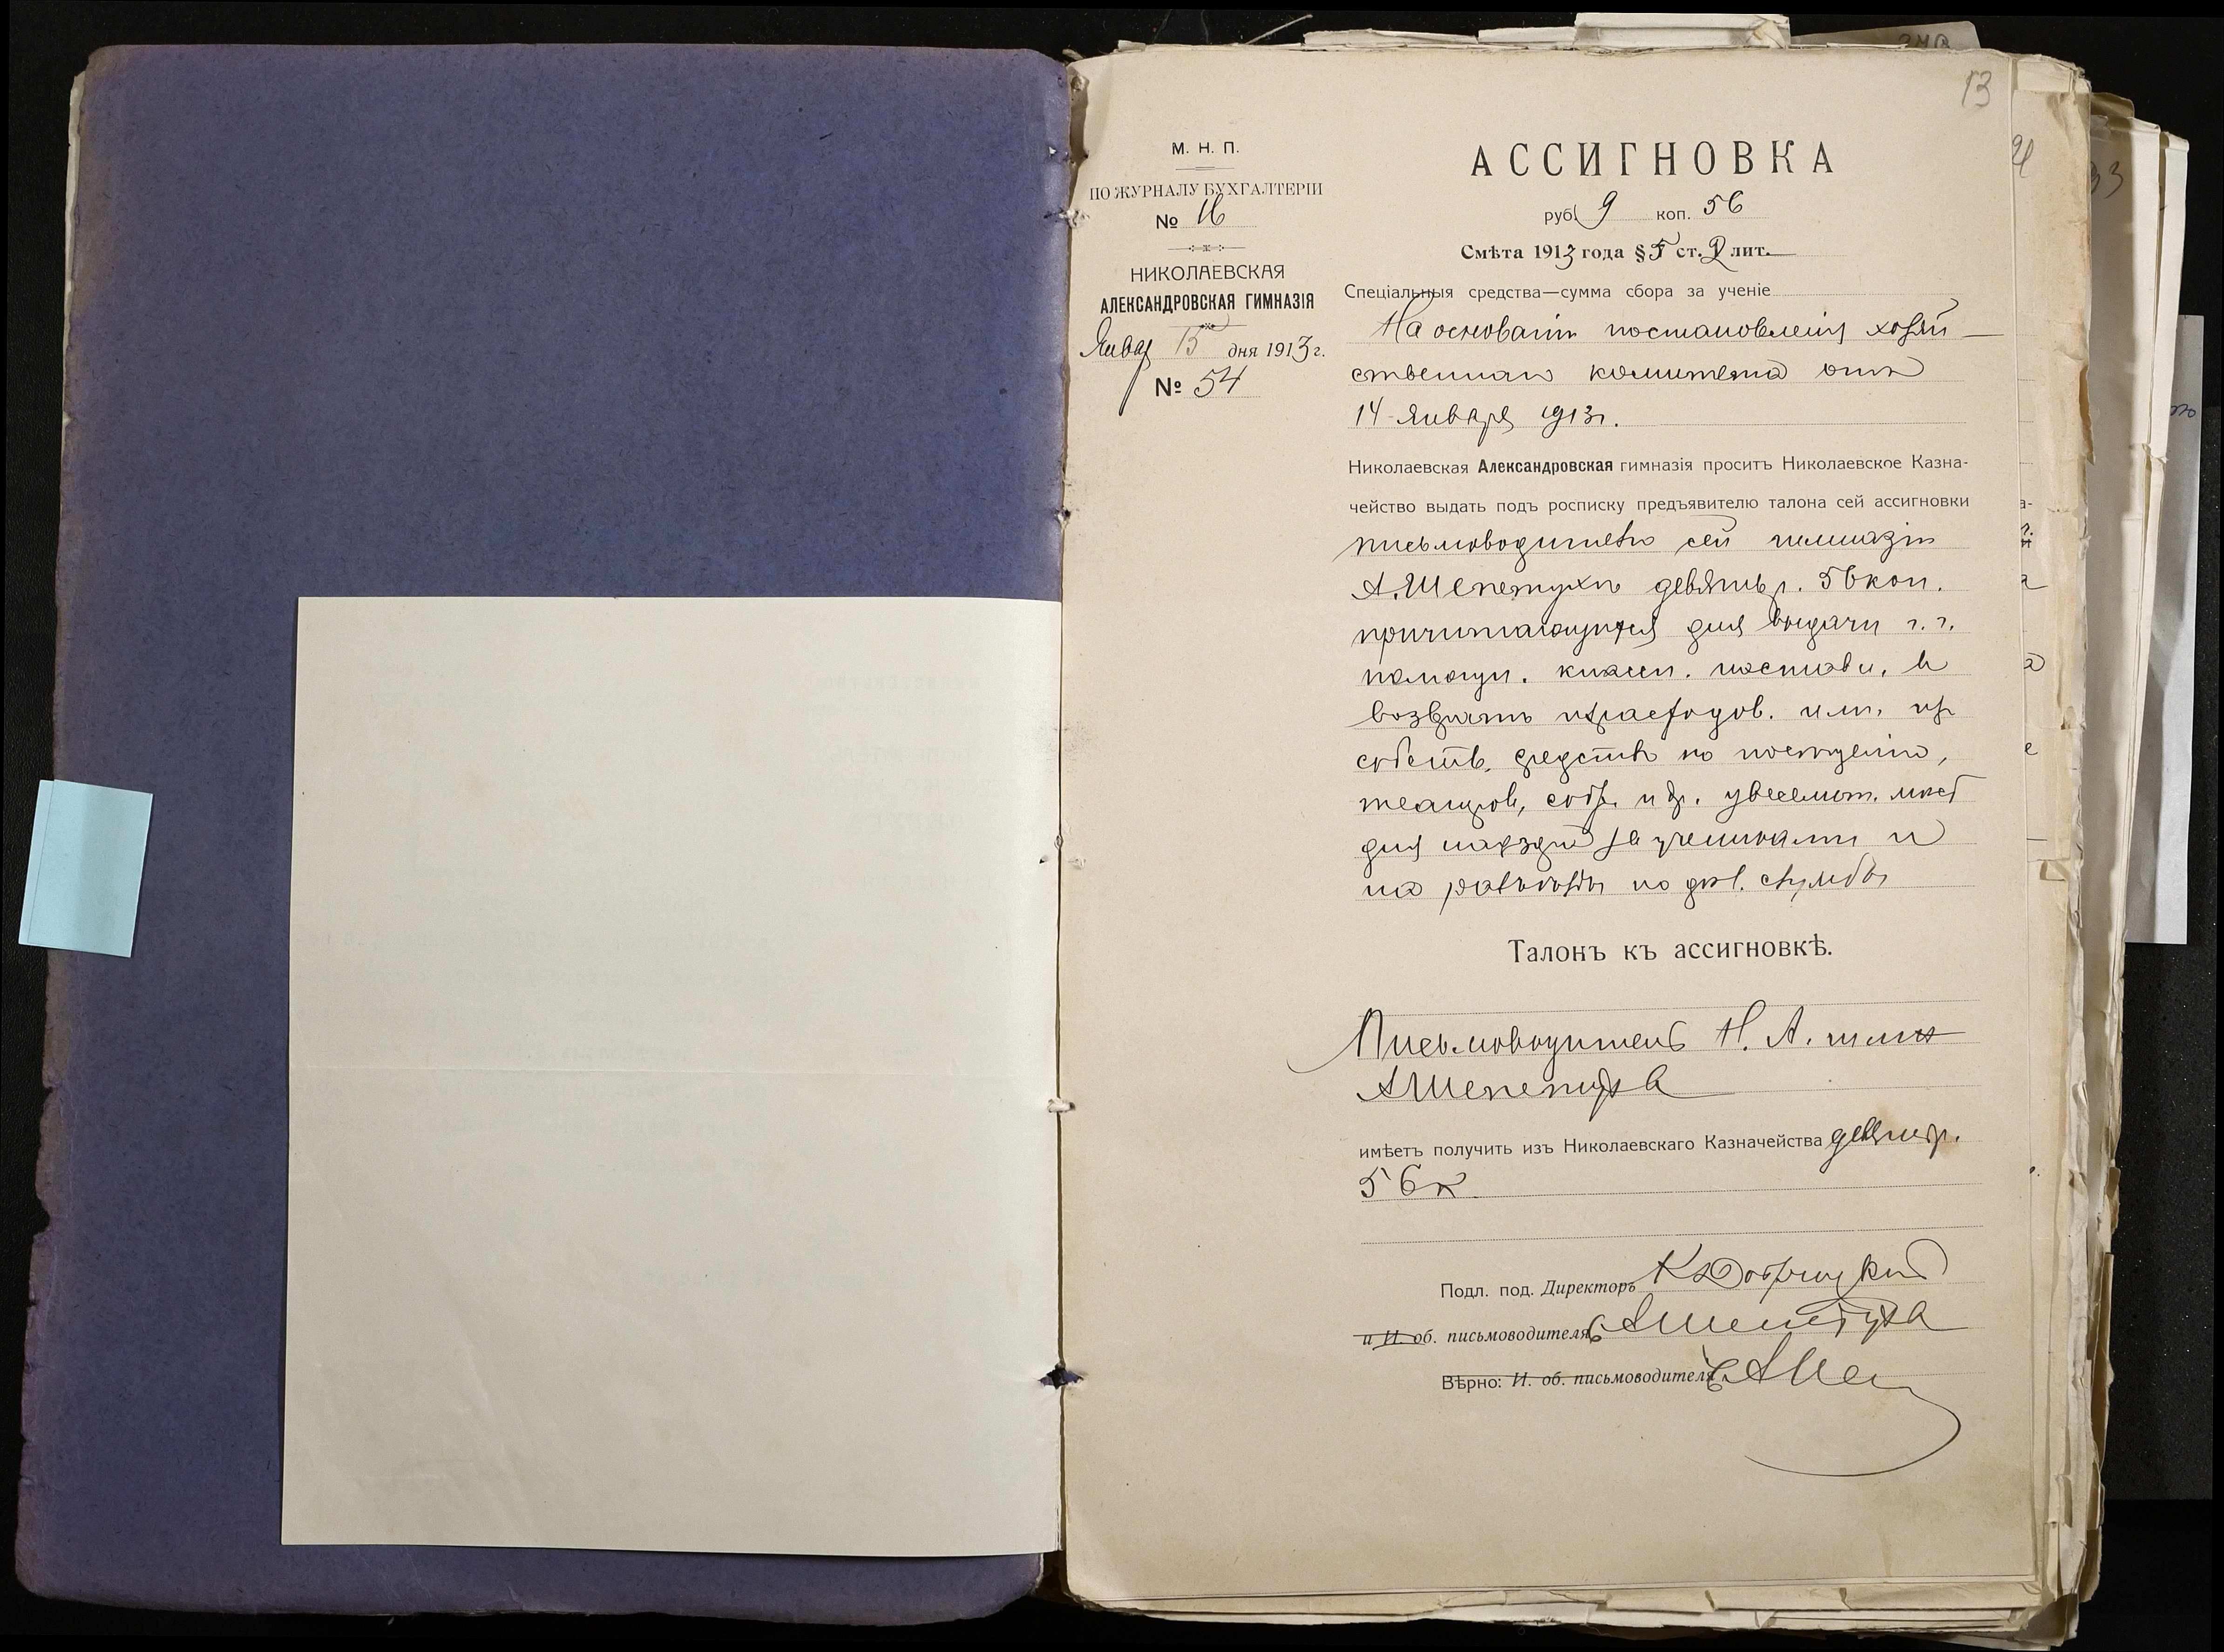 13
М. Н. П.
ПО ЖУРНАЛУ БУХГАЛТЕРІИ
№ 16
НИКОЛАЕВСКАЯ
АЛЕКСАНДРОВСКАЯ ГИМНАЗІЯ
Январ 15 дня 1913 г.
№ 54
АССИГНОВКА
руб. 9 коп. 56
Смѣта 1913 года § 5 ст. 2 лит. —
Спеціальныя средства—сумма сбора за ученіе
На основаніи постановленія хозяй-
ственнаго комитета отъ
14 Января 1913 г.
Николаевская Александровская гимназія проситъ Николаевское Казна-
чейство выдать подъ росписку предъявителю талона сей ассигновки
письмоводителю сей гимназіи
А. Шепетухѣ девять р. 56 коп.
причитающихся для выдачи г. г.
помощн. класс. наставн. въ
возвратъ израсходов. ими изъ
собств. средствъ по посѣщенію
театров, собр. и др. увеселит. мѣст
для надзора за учениками и
на разъѣзды по дѣл. службы
Талонъ къ ассигновкѣ.
Письмоводитель Н. А. гимн
А Шепетуха
имѣетъ получить изъ Николаевскаго Казначейства девять р.
56 к
Подл. под. Директоръ К
и И. об. письмоводителя ь АШепетуха
Вѣрно: И. об. письмоводителя ь АШеп